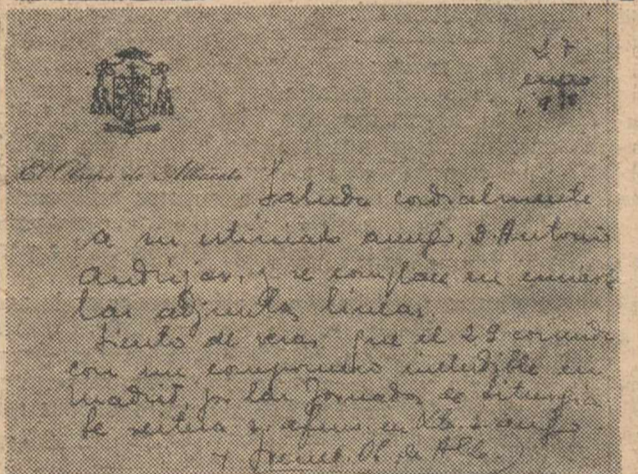 27
enero
El Obispo de Albacete
Saluda cordialmente
a su estimado amigo, D. Antonio
Andújar, y se complace en enviarle
las adjuntas líneas.
Siento de veras que el 29 coincida
con un compromiso ineludible en
Madrid, por las Jornadas de Liturgia
Se reitera s. afmo. en Xto. s. amigo
+ Ireneo, Ob. de Alb.